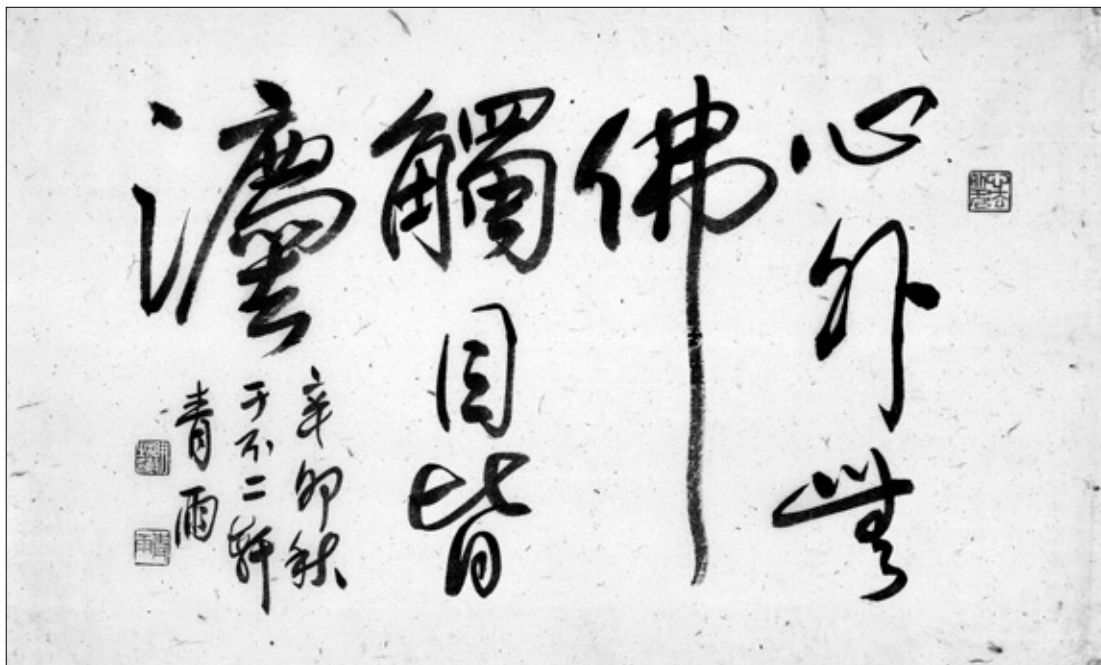 心外無
佛
觸目皆
灋
辛卯秋
于不二軒
青雨